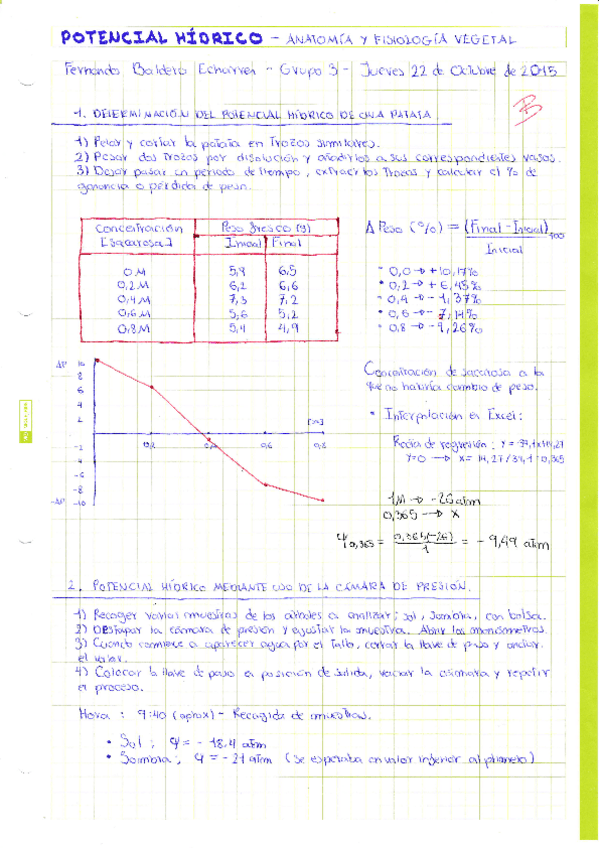 POTENCIAL HÍDRICO - ANATOMÍA Y FISIOLOGÍA VEGETAL
Fernando Baldero Echarren - Grupo 3 - Jueves 22 de Octubre de 2015
1. DETERMINACIÓN DEL POTENCIAL HÍDRICO DE UNA PATATA
1) Pelar y cortar la patata en trozos similares.
2) Pesar dos trozos por disolución y añadirlos a sus correspondientes vasos.
3) Dejar pasar un periodo de tiempo, extraer los trozos y calcular el % de
ganancia o pérdida de peso.
Concentración [Sacarosa] Peso fresco (g)
Inicial Final
0 M 5,9 6,5
0,2 M 6,2 6,6
0,4 M 7,3 7,2
0,6 M 5,6 5,2
0,8 M 5,4 4,9
Δ Peso (%) = (Final - Inicial) 100
Inicial
- 0,0 → +10,17%
• 0,2 → + 6,45%
- 0,4 → - 1,37%
• 0,6 → - 7,14%
• 0,8 → - 9,26%
ΔP 10
8
6
4
2
-2
-4
-6
-8
-ΔP -10
[M]
0,2 0,4 0,6 0,8
Concentración de sacarosa a la
que no habría cambio de peso.
• Interpolación en Excel:
Recta de regresión: y =
y=0 → x = 14,27/39,1 = 0,365
1M → -26 atm
0,365 → x
Ψ 0,365 = 0,365(-26) = - 9,49 atm
1
2. POTENCIAL HÍDRICO MEDIANTE USO DE LA CÁMARA DE PRESIÓN.
1) Recoger varias muestras de los árboles a analizar; sol, sombra, con bolsa.
2) Destapar la cámara de presión y ajustar la muestra. Abrir los manómetros.
3) Cuando comience a aparecer agua por el tallo, cerrar la llave de paso y anotar
el valor.
4) Colocar la llave de paso en posición de salida, vaciar la cámara y repetir
el proceso.
Hora: 9:40 (aprox) - Recogida de muestras.
• Sol; Ψ = - 18,4 atm
• Sombra; Ψ = - 21 atm (Se esperaba un valor inferior al primero)